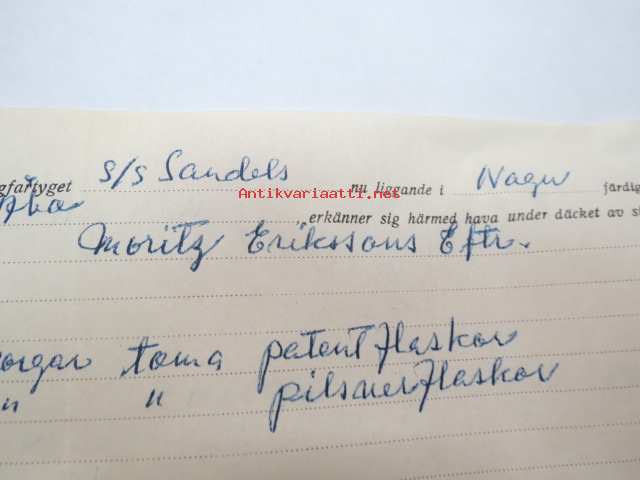 gfartyget s/s Sandels nu liggande i Nagu färdig
Åbo „erkänner sig härmed hava under däcket av si
Antikvariaatti.net
Moritz Erikssons Eftr.
orgar toma patentflaskor
" " pilsnerflaskor